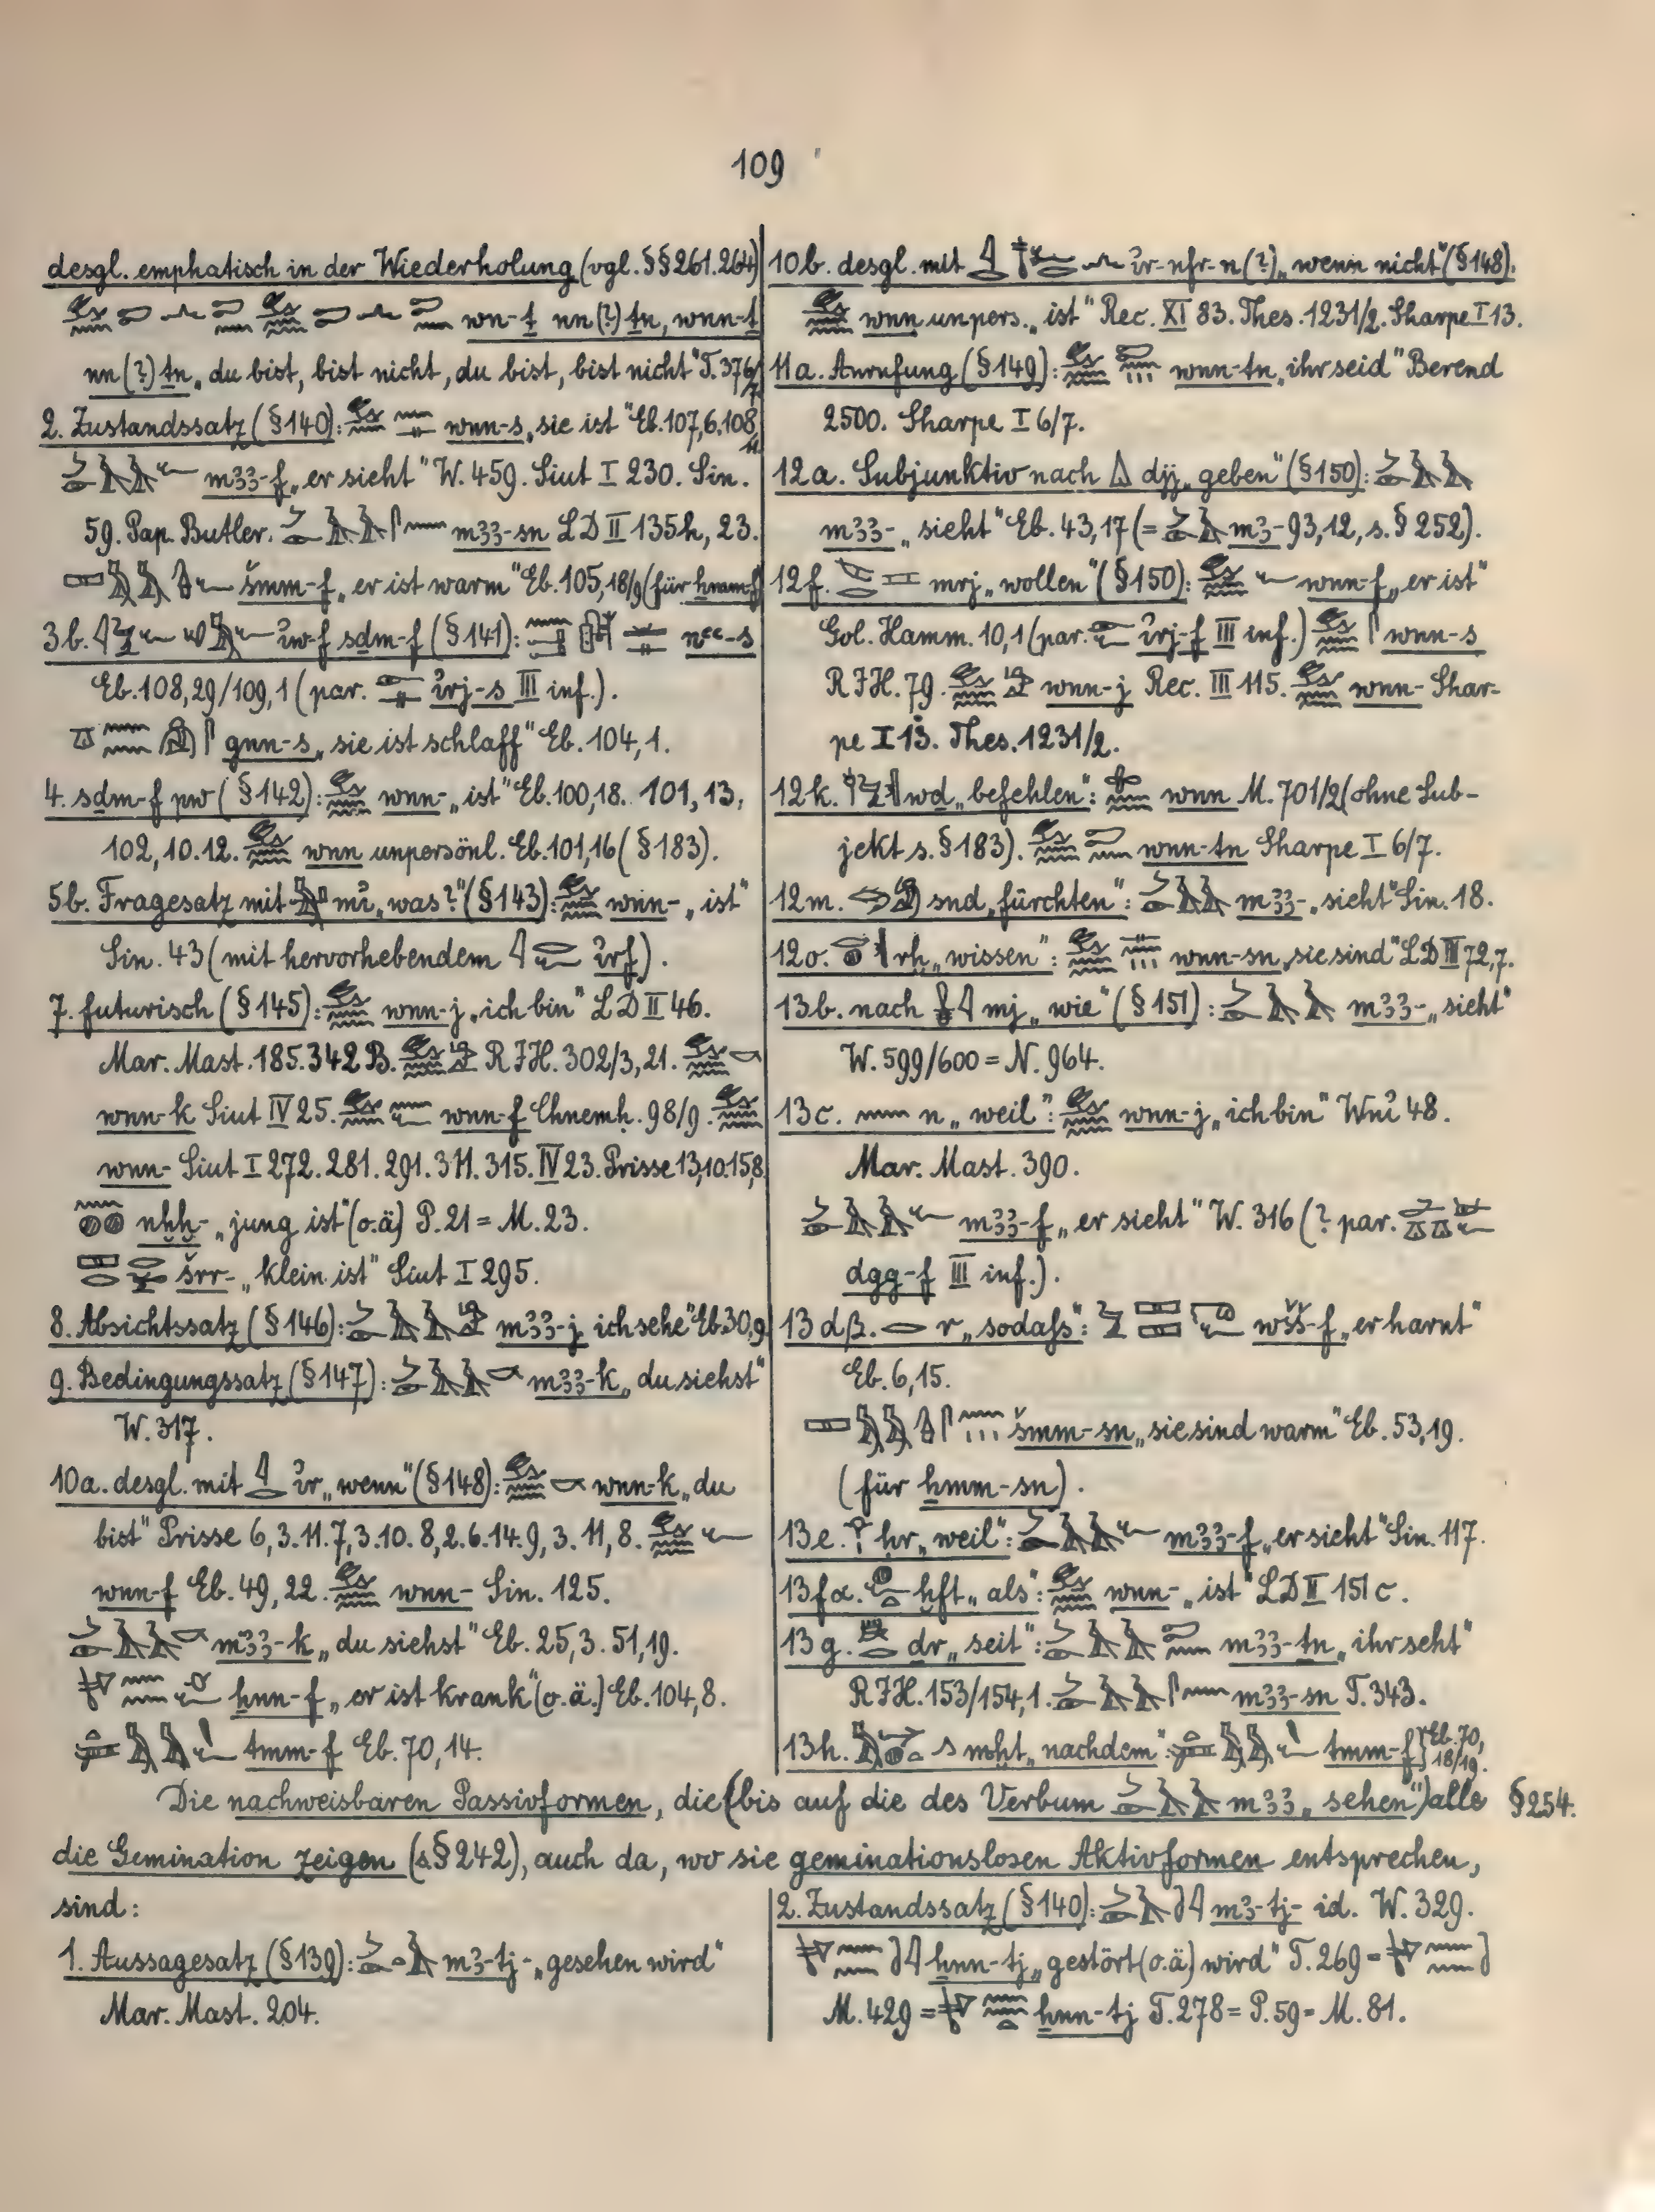 109
desgl. emphatisch in der Wiederholung (vgl. §§261.264)
wn-ṯ nn(?) ṯn, wnn-ṯ
nn(?) ṯn „du bist, bist nicht, du bist, bist nicht“ T. 376/7.
2. Zustandssatz (§140): wnn-s „sie ist“ Eb. 107,6. 108,
mꜣꜣ-f „er sieht“ W. 459. Siut I 230. Sin.
59. Pap. Butler. mꜣꜣ-sn LD II 135h, 23.
šmm-f „er ist warm“ Eb. 105,18/9 (für ẖmm-f)
3b. ı͗w-f sḏm-f (§141): nꜥꜥ-s
Eb. 108,29/109,1 (par. ı͗rj-s III inf.).
gnn-s „sie ist schlaff“ Eb. 104,1.
4. sḏm-f pw (§142): wnn- „ist“ Eb. 100,18. 101,13,
102,10.12. wnn unpersönl. Eb. 101,16 (§183).
5b. Fragesatz mit mı͗ „was?“ (§143): wnn- „ist“
Sin. 43 (mit hervorhebendem ı͗rf).
7. futurisch (§145): wnn-j „ich bin“ LD II 46.
Mar. Mast. 185. 342 B. RIH. 302/3, 21.
wnn-k Siut IV 25. wnn-f Chnemḥ. 98/9.
wnn- Siut I 272. 281. 291. 311. 315. IV 23. Prisse 13,10. 15,8
nḫḫ- „jung ist“ (o.ä) P. 21 = M. 23.
šrr- „klein ist“ Siut I 295.
8. Absichtssatz (§146): mꜣꜣ-j „ich sehe“ Eb. 30,9
9. Bedingungssatz (§147): mꜣꜣ-k „du siehst“
W. 317.
10a. desgl. mit ı͗r „wenn“ (§148): wnn-k „du
bist“ Prisse 6,3.11. 7,3.10. 8,2.6.14. 9,3. 11,8.
wnn-f Eb. 49,22. wnn- Sin. 125.
mꜣꜣ-k „du siehst“ Eb. 25,3. 51,19.
ẖnn-f „er ist krank“ (o.ä.) Eb. 104,8.
tmm-f Eb. 70,14.
10b. desgl. mit ı͗r-nfr-n(?) „wenn nicht“ (§148).
wnn unpers. „ist“ Rec. XI 83. Thes. 1231/2. Sharpe I 13.
11a. Anrufung (§149): wnn-ṯn „ihr seid“ Berend
2500. Sharpe I 6/7.
12a. Subjunktiv nach djj „geben“ (§150):
mꜣꜣ- „sieht“ Eb. 43,17 (= mꜣ- 93,12, s. §252).
12f. mrj „wollen“ (§150): wnn-f „er ist“
Gol. Hamm. 10,1 (par. ı͗rj-f III inf.) wnn-s
RIH. 79. wnn-j Rec. III 115. wnn- Shar-
pe I 13. Thes. 1231/2.
12k. wḏ „befehlen“: wnn M. 701/2 (ohne Sub-
jekt s. §183). wnn-ṯn Sharpe I 6/7.
12m. snḏ „fürchten“: mꜣꜣ- „sieht“ Sin. 18.
12o. rḫ „wissen“: wnn-sn „sie sind“ LD III 72,7.
13b. nach mj „wie“ (§151): mꜣꜣ- „sieht“
W. 599/600 = N. 964.
13c. n „weil“: wnn-j „ich bin“ Wnı͗ 48.
Mar. Mast. 390.
mꜣꜣ-f „er sieht“ W. 316 (? par.
dgg-f III inf.).
13dβ. r „sodaſs“: wšš-f „er harnt“
Eb. 6,15.
šmm-sn „sie sind warm“ Eb. 53,19.
(für ẖmm-sn).
13e. ḥr „weil“: mꜣꜣ-f „er sieht“ Sin. 117.
13fα. ḫft „als“: wnn- „ist“ LD II 151c.
13g. ḏr „seit“: mꜣꜣ-ṯn „ihr seht“
RIH. 153/154,1. mꜣꜣ-sn T. 343.
13h. m ḫt „nachdem“: tmm-f} Eb. 70, 18/19.
Die nachweisbaren Passivformen, die (bis auf die des Verbum mꜣꜣ „sehen“) alle §254.
die Gemination zeigen (s. §242), auch da, wo sie geminationslosen Aktivformen entsprechen,
sind:
1. Aussagesatz (§139): mꜣ-tj- „gesehen wird“
Mar. Mast. 204.
2. Zustandssatz (§140): mꜣ-tj- id. W. 329.
ẖnn-tj „gestört (o.ä) wird“ T. 269 =
M. 429 = ẖnn-tj T. 278 = P. 59 = M. 81.